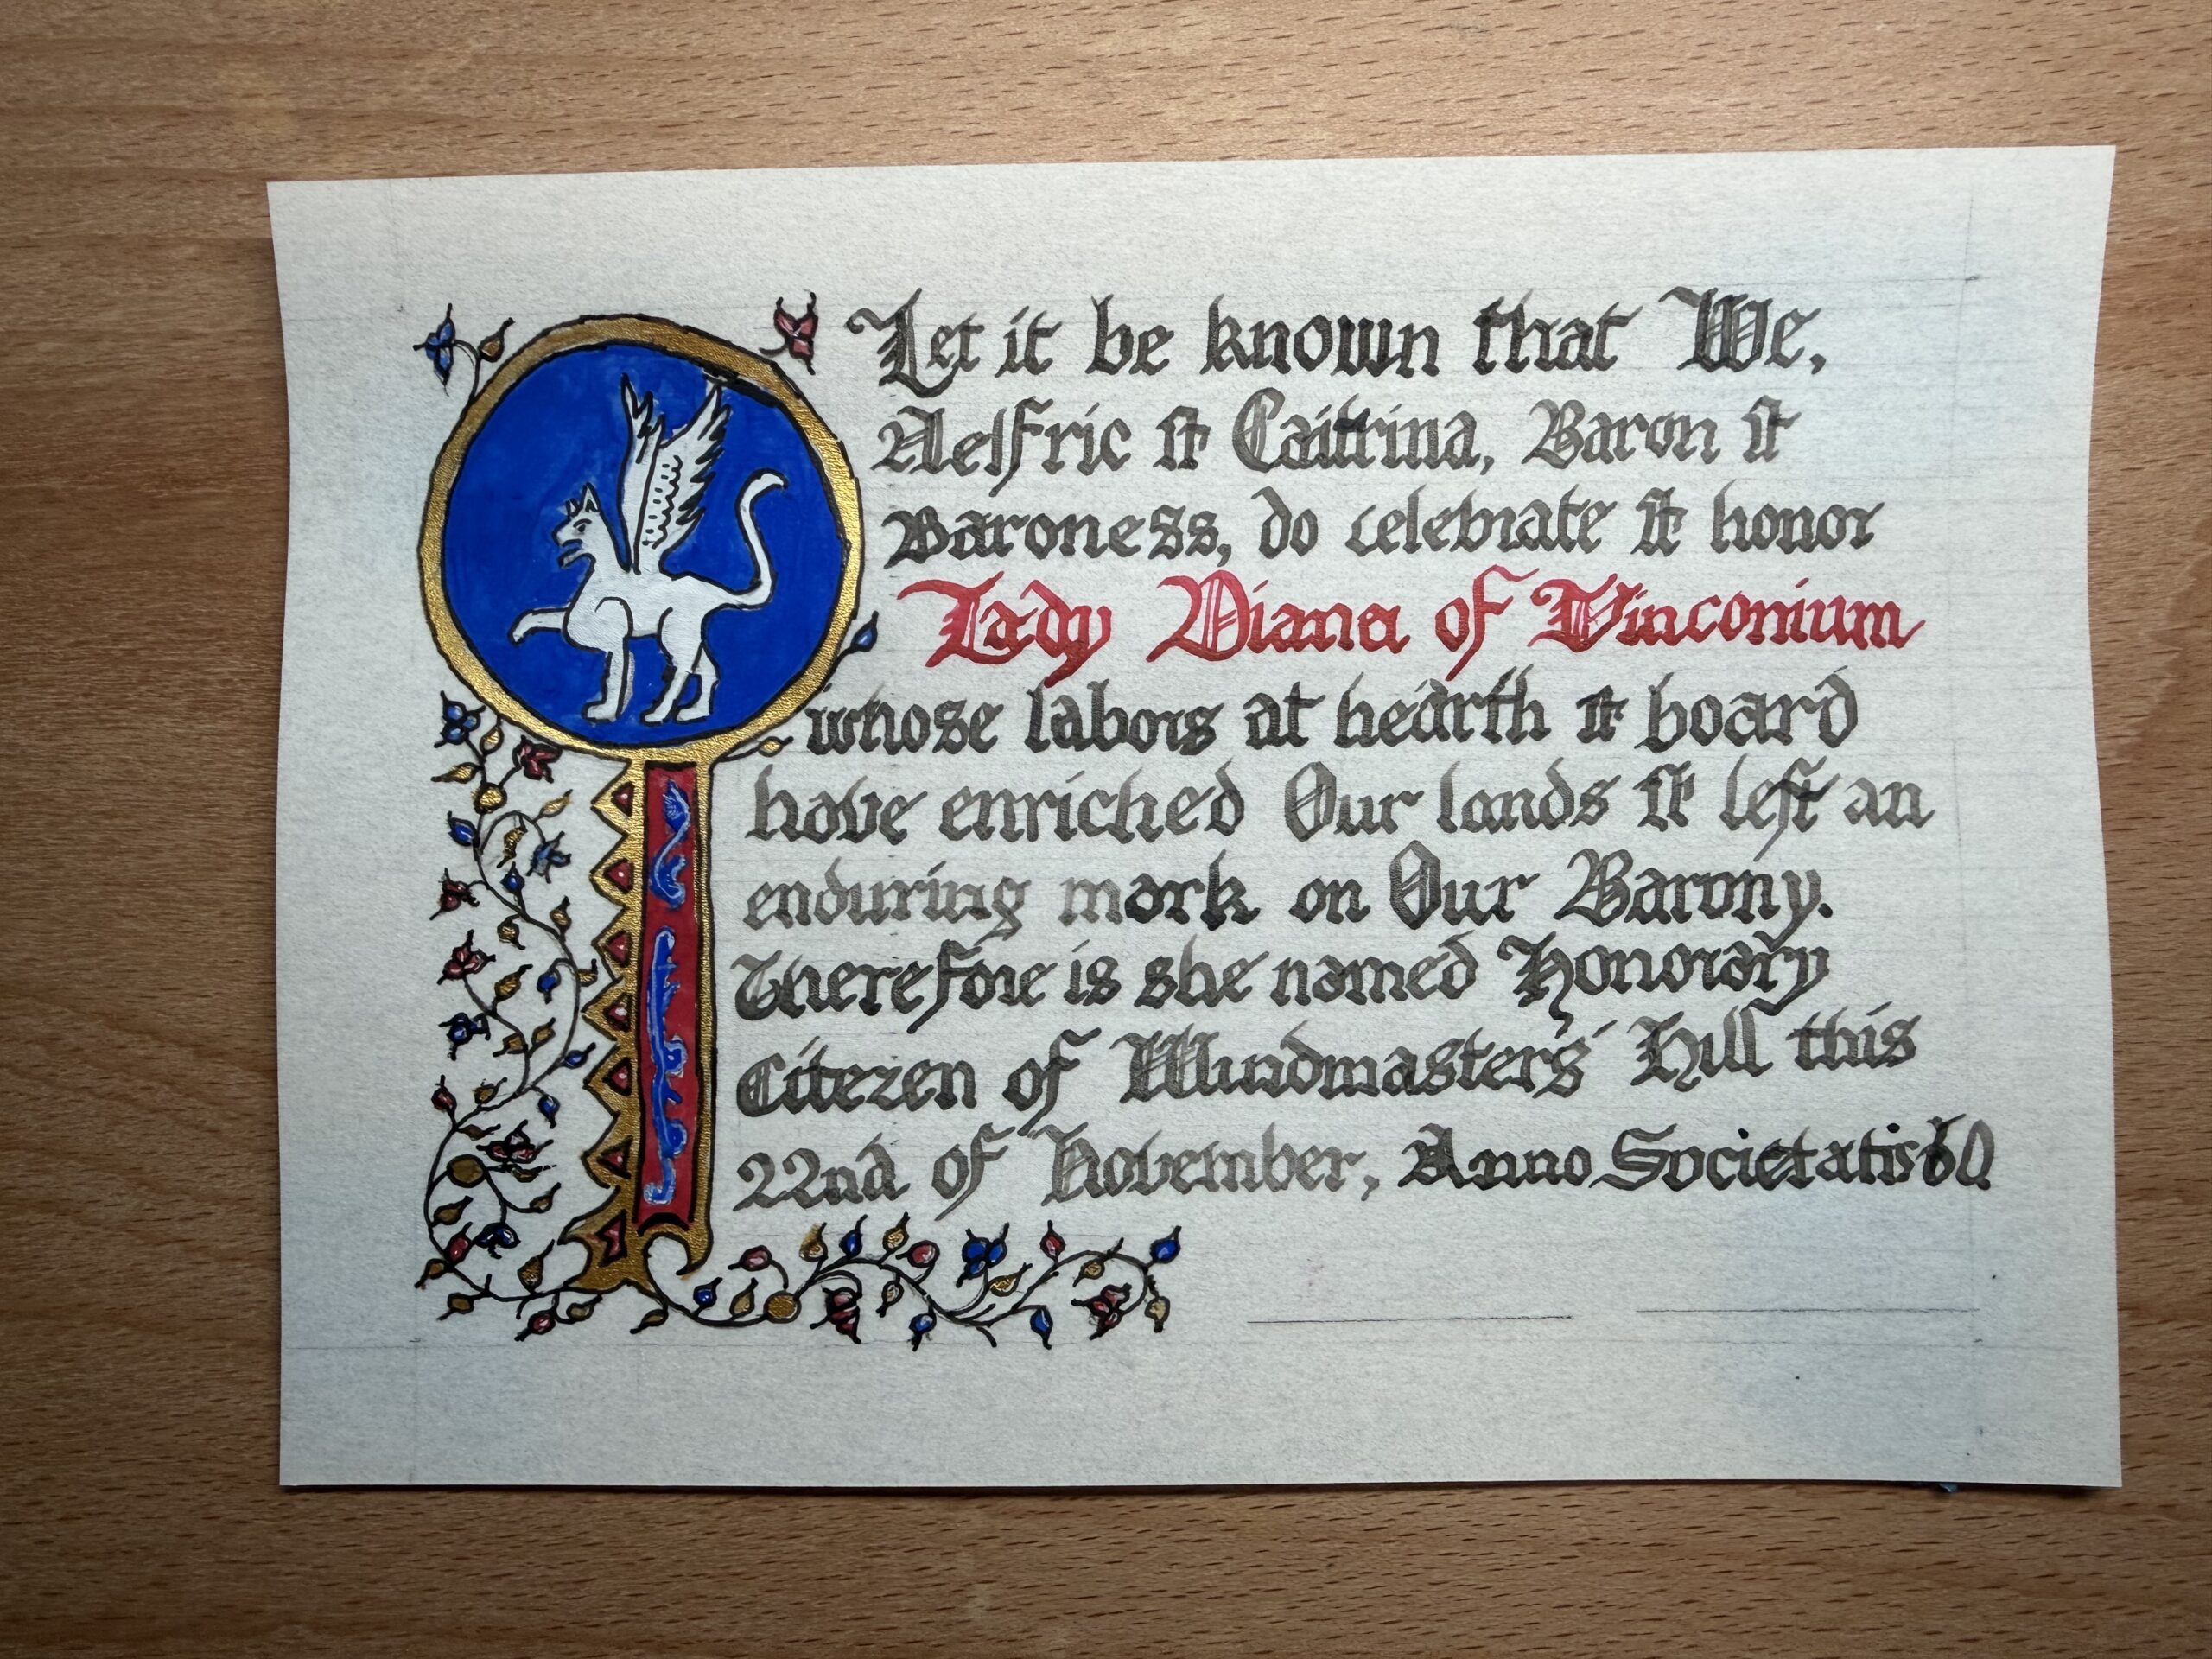 Let it be known that We,
Aelfric & Caitrina, Baron &
Baroness, do celebrate & honor
Lady Diana of Vinconium
whose labors at hearth & board
have enriched Our lands & left an
enduring mark on Our Barony.
Therefore is she named Honorary
Citezen of Windmasters' Hill this
22nd of November, Anno Societatis 60